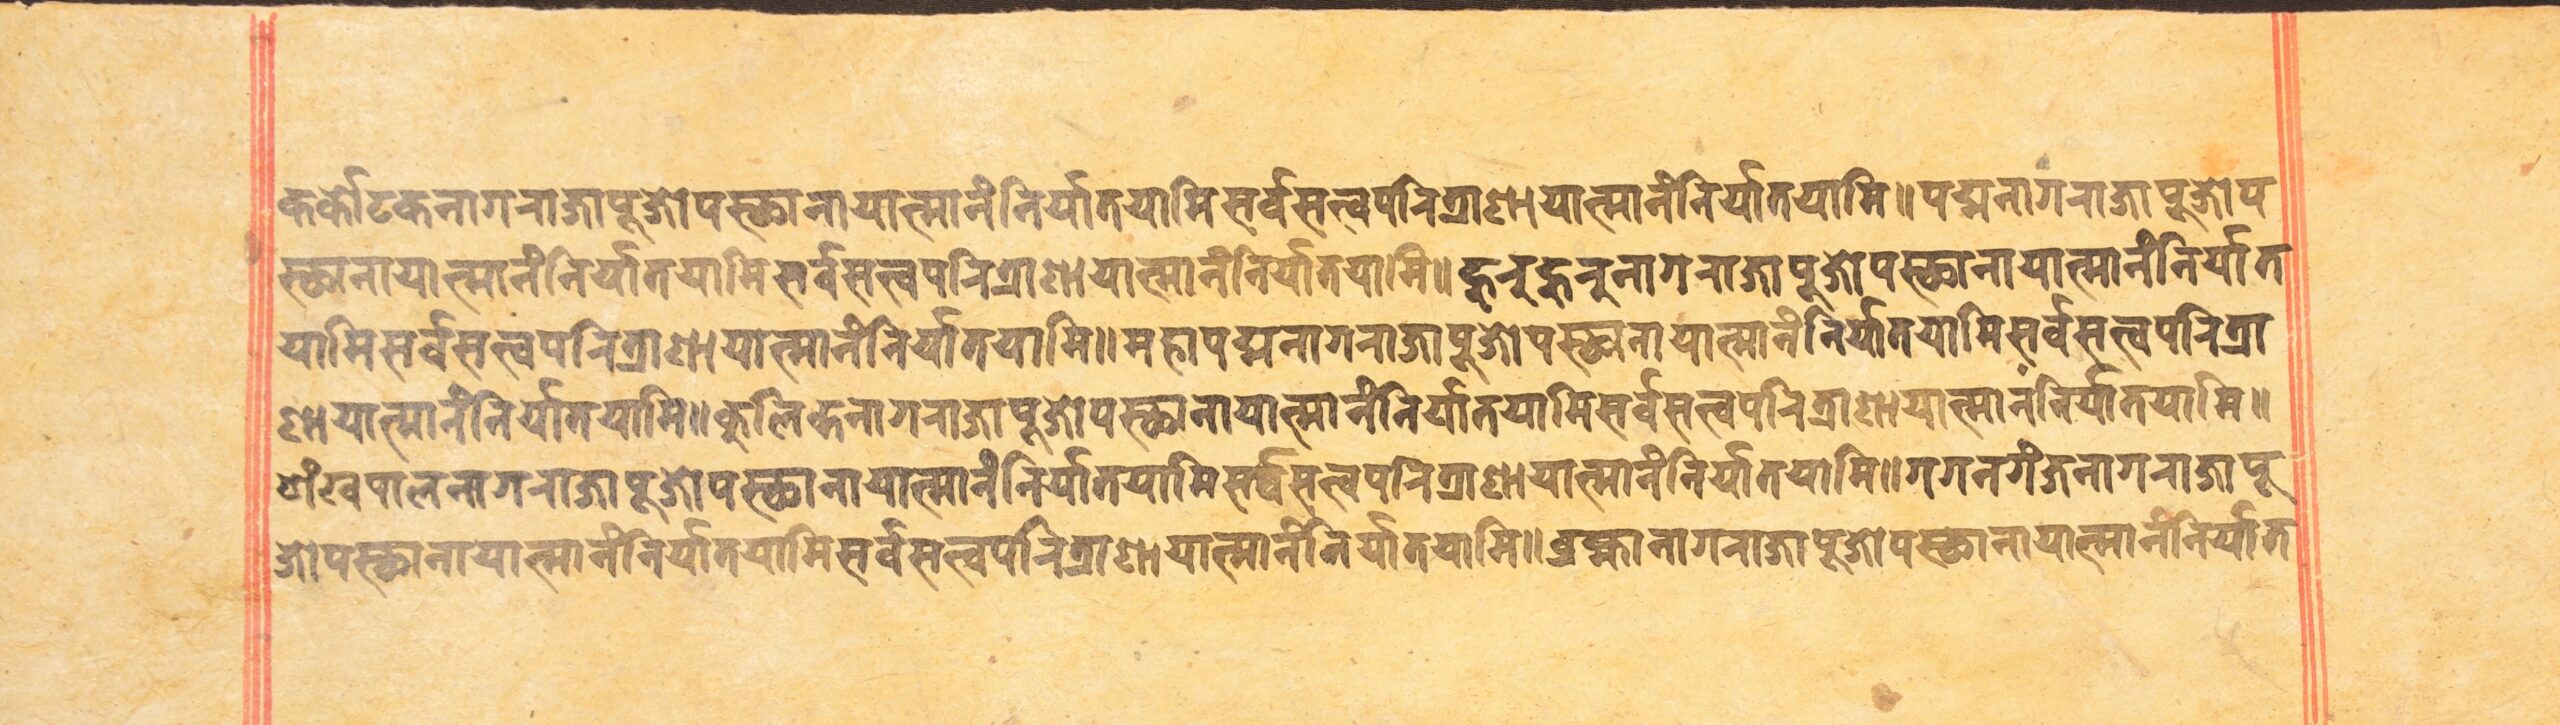 कर्कोटकनागराजापूजोपस्थानायात्मानंनिर्यातयामिसर्वसत्त्वपरित्राणायात्मानंनिर्यातयामि॥पद्मनागराजापूजोप
स्थानायात्मानंनिर्यातयामिसर्वसत्त्वपरित्राणायात्मानंनिर्यातयामि॥हुरुहुरुनागराजापूजोपस्थानायात्मानंनिर्यात
यामिसर्वसत्त्वपरित्राणायात्मानंनिर्यातयामि॥महापद्मनागराजापूजोपस्थानायात्मानंनिर्यातयामिसर्वसत्त्वपरित्रा
णायात्मानंनिर्यातयामि॥कुलिकनागराजापूजोपस्थानायात्मानंनिर्यातयामिसर्वसत्त्वपरित्राणायात्मानंनिर्यातयामि॥
शंखपालनागराजापूजोपस्थानायात्मानंनिर्यातयामिसर्वसत्त्वपरित्राणायात्मानंनिर्यातयामि॥गगनगंजनागराजापू
जोपस्थानायात्मानंनिर्यातयामिसर्वसत्त्वपरित्राणायात्मानंनिर्यातयामि॥ब्रह्मानागराजापूजोपस्थानायात्मानंनिर्यात